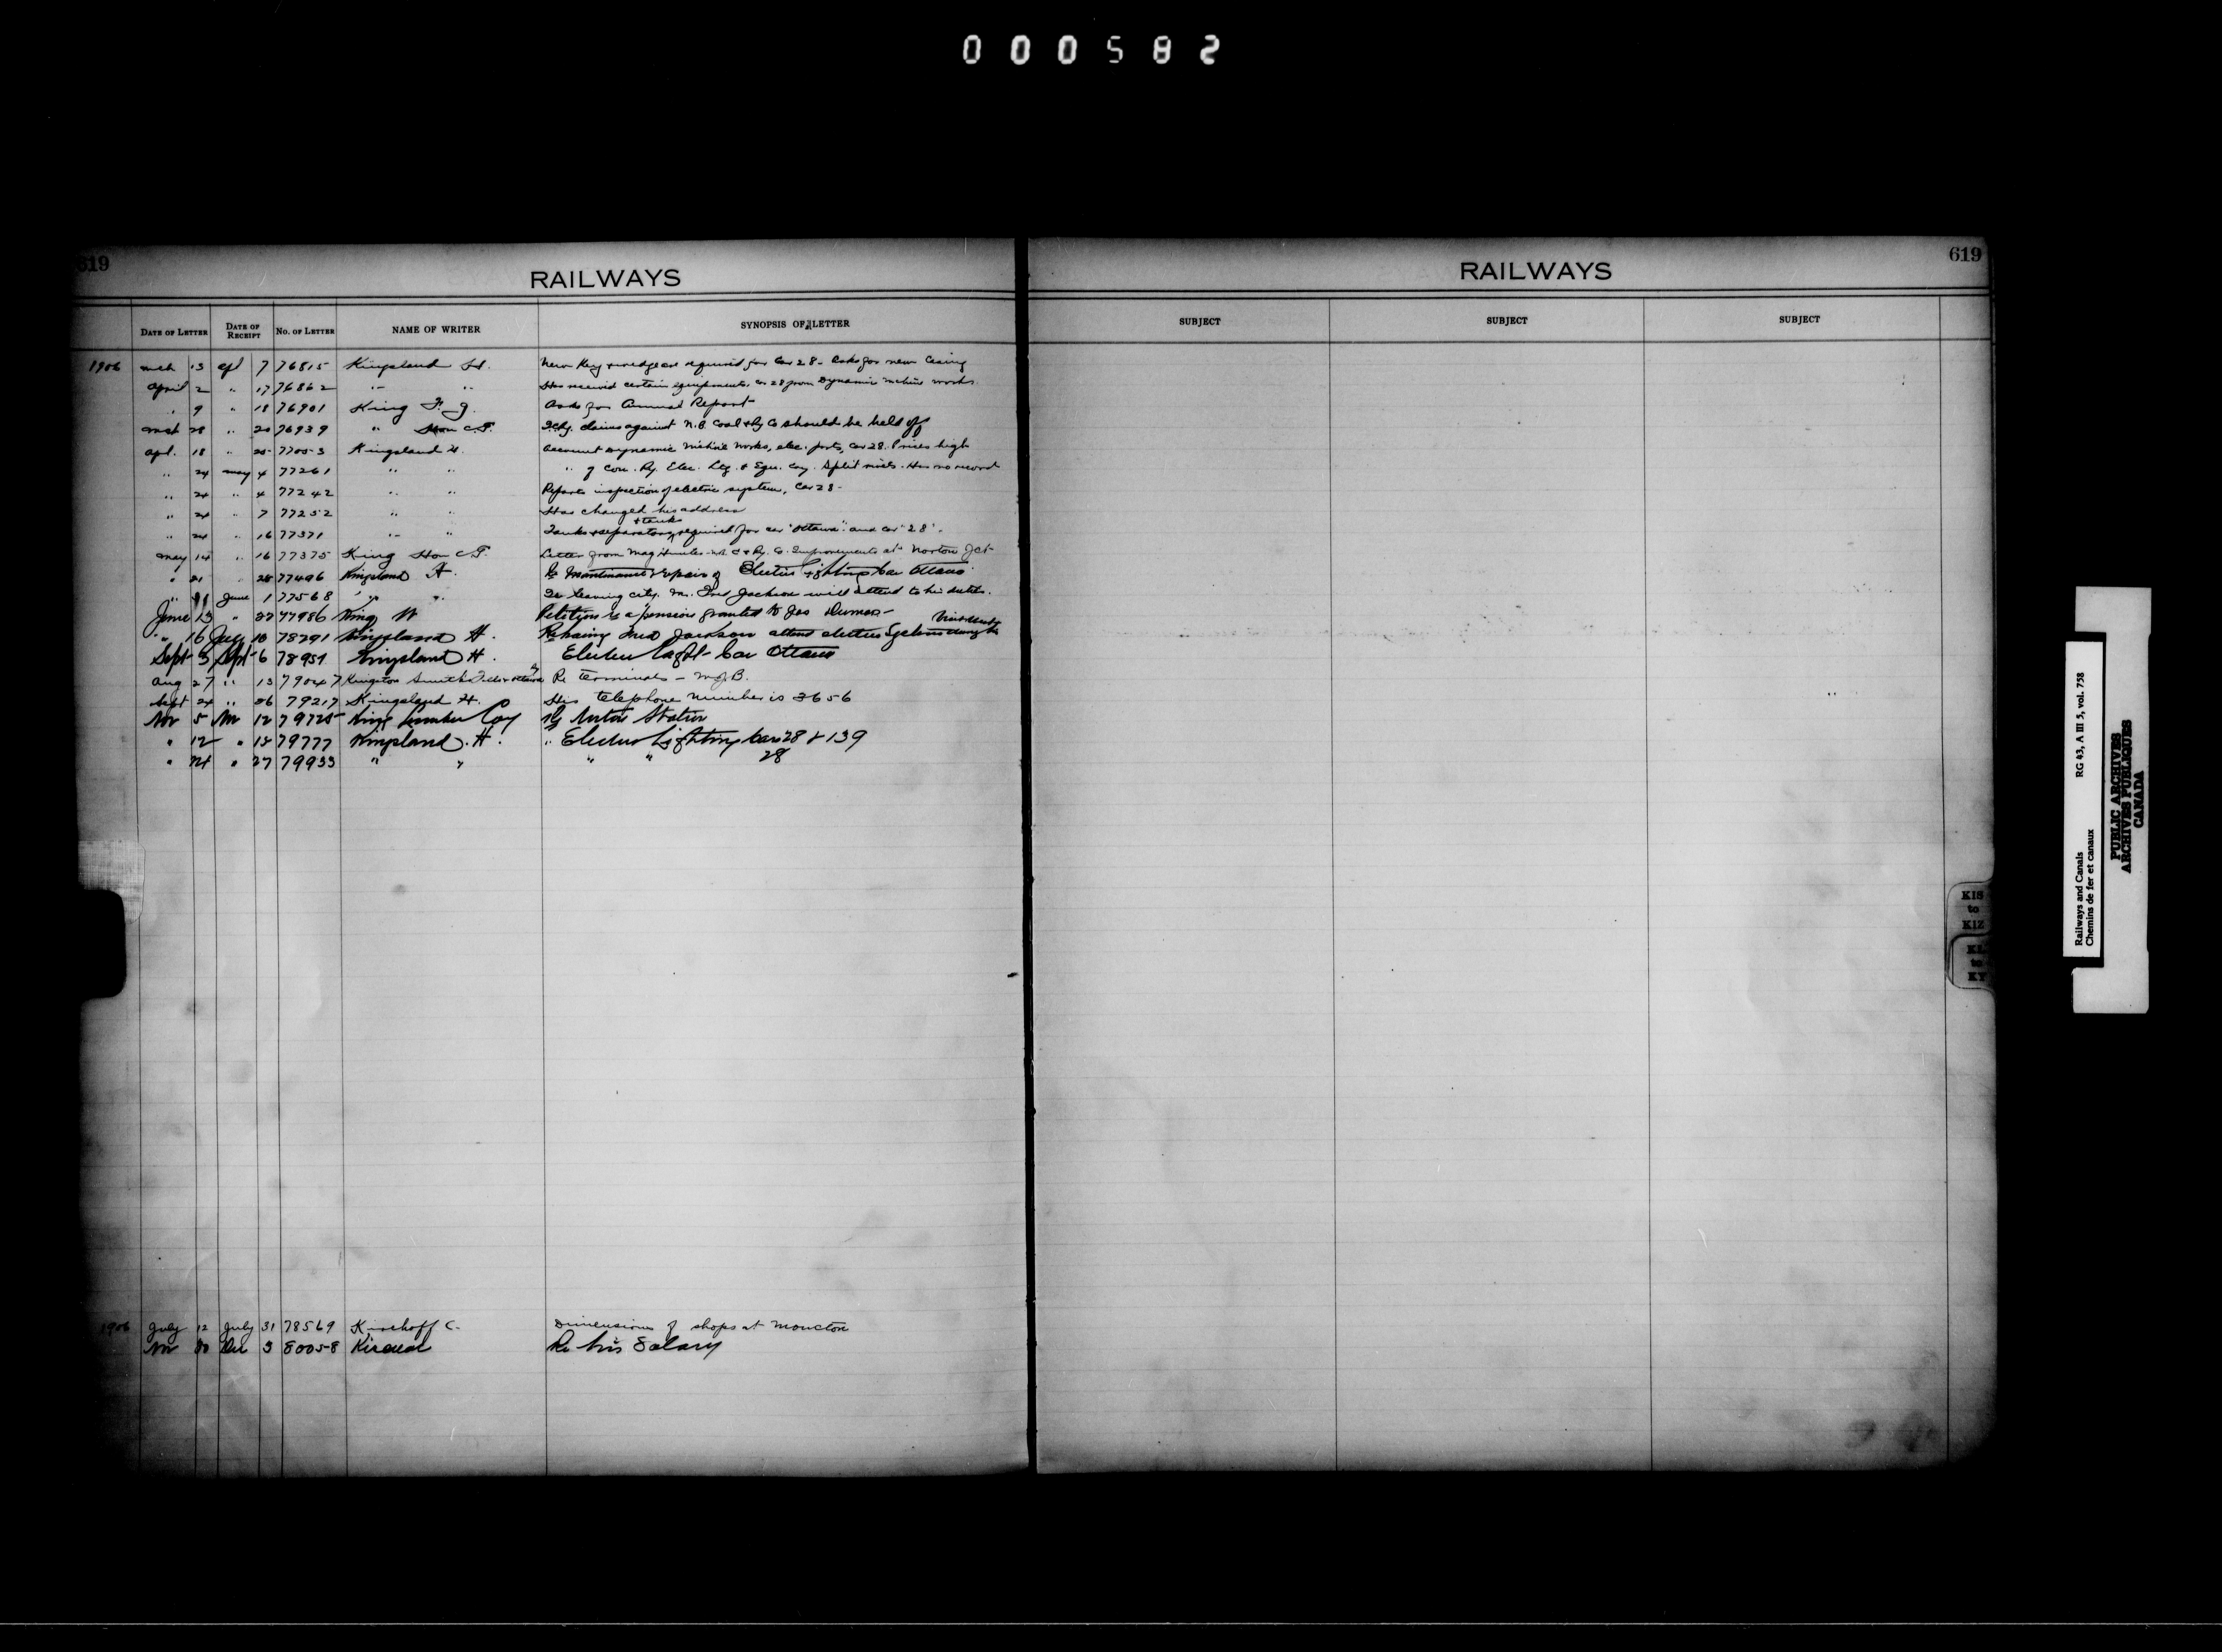 000582
619
RAILWAYS
DATE OF LETTER DATE OF RECEIPT No. OF LETTER NAME OF WRITER SYNOPSIS OF LETTER
1906 mch 13 apl 7 76815 Kingsland H. New Key & wedge are required for Car 28 - Asks for new casing
april 2 " 17 76862 " " Has received certain equipments, car 28 from Dynamic works
" 9 " 18 76901 King F. J. Asks for Annual Report
mch 28 " 20 76939 " Hon G.G. claims against N.B. Coal & Ry Co should be held off
apl. 18 " 25 77053 Kingsland H. Account Dynamic works, elec. parts, Car 28. Prices high
" 24 may 4 77261 " " " of Con. Ry. Elec. Ltg. & Equ. Coy. Split - Has no record
" 24 " 4 77242 " " Reports inspection of electric system, Car 28 -
" 24 " 7 77252 " " Has changed his address
" 24 " 16 77371 " " Tanks & separators & tanks required for car "Ottawa" and car "28".
may 14 " 16 77375 King Hon G.G. Letter from N.B. C & Ry. Co. Improvements at Norton Jct
" 21 " 28 77496 Kingsland H. Re Maintenance & repair of Electric Lighting Car Ottawa
" June 1 77568 " " Is leaving city. Mr. Fred Jackson will attend to his duties.
June 13 " 22 77986 King W Petition re a pension granted to Jos Dumas -
" 16 July 18 78291 Kingsland H. Re having Fred Jackson attend electric System during his
Sept 3 Sept 6 78951 Kingsland H. Electric Light - Car Ottawa
Aug 27 " 13 79047 Kingston Smith Re terminals -
Sept 24 " 26 79217 Kingsland H. His telephone number is 3656
Nov 5 Nov 12 79725 King Lumber Coy Re Station
" 12 " 15 79777 Kingsland. H. " Electric Lighting Cars 28 & 139
" 24 " 27 79933 " " " " 28
1906 July 12 July 31 78569 Kirchoff C. Dimensions of shops at Moncton
Nov 30 Dec 3 80058 Re his Salary
RAILWAYS
619
SUBJECT SUBJECT SUBJECT
KIS
to
KIZ
KL
to
KY
Railways and Canals RG 43, A III 5, vol. 758
Chemins de fer et canaux
PUBLIC ARCHIVES
ARCHIVES PUBLIQUES
CANADA